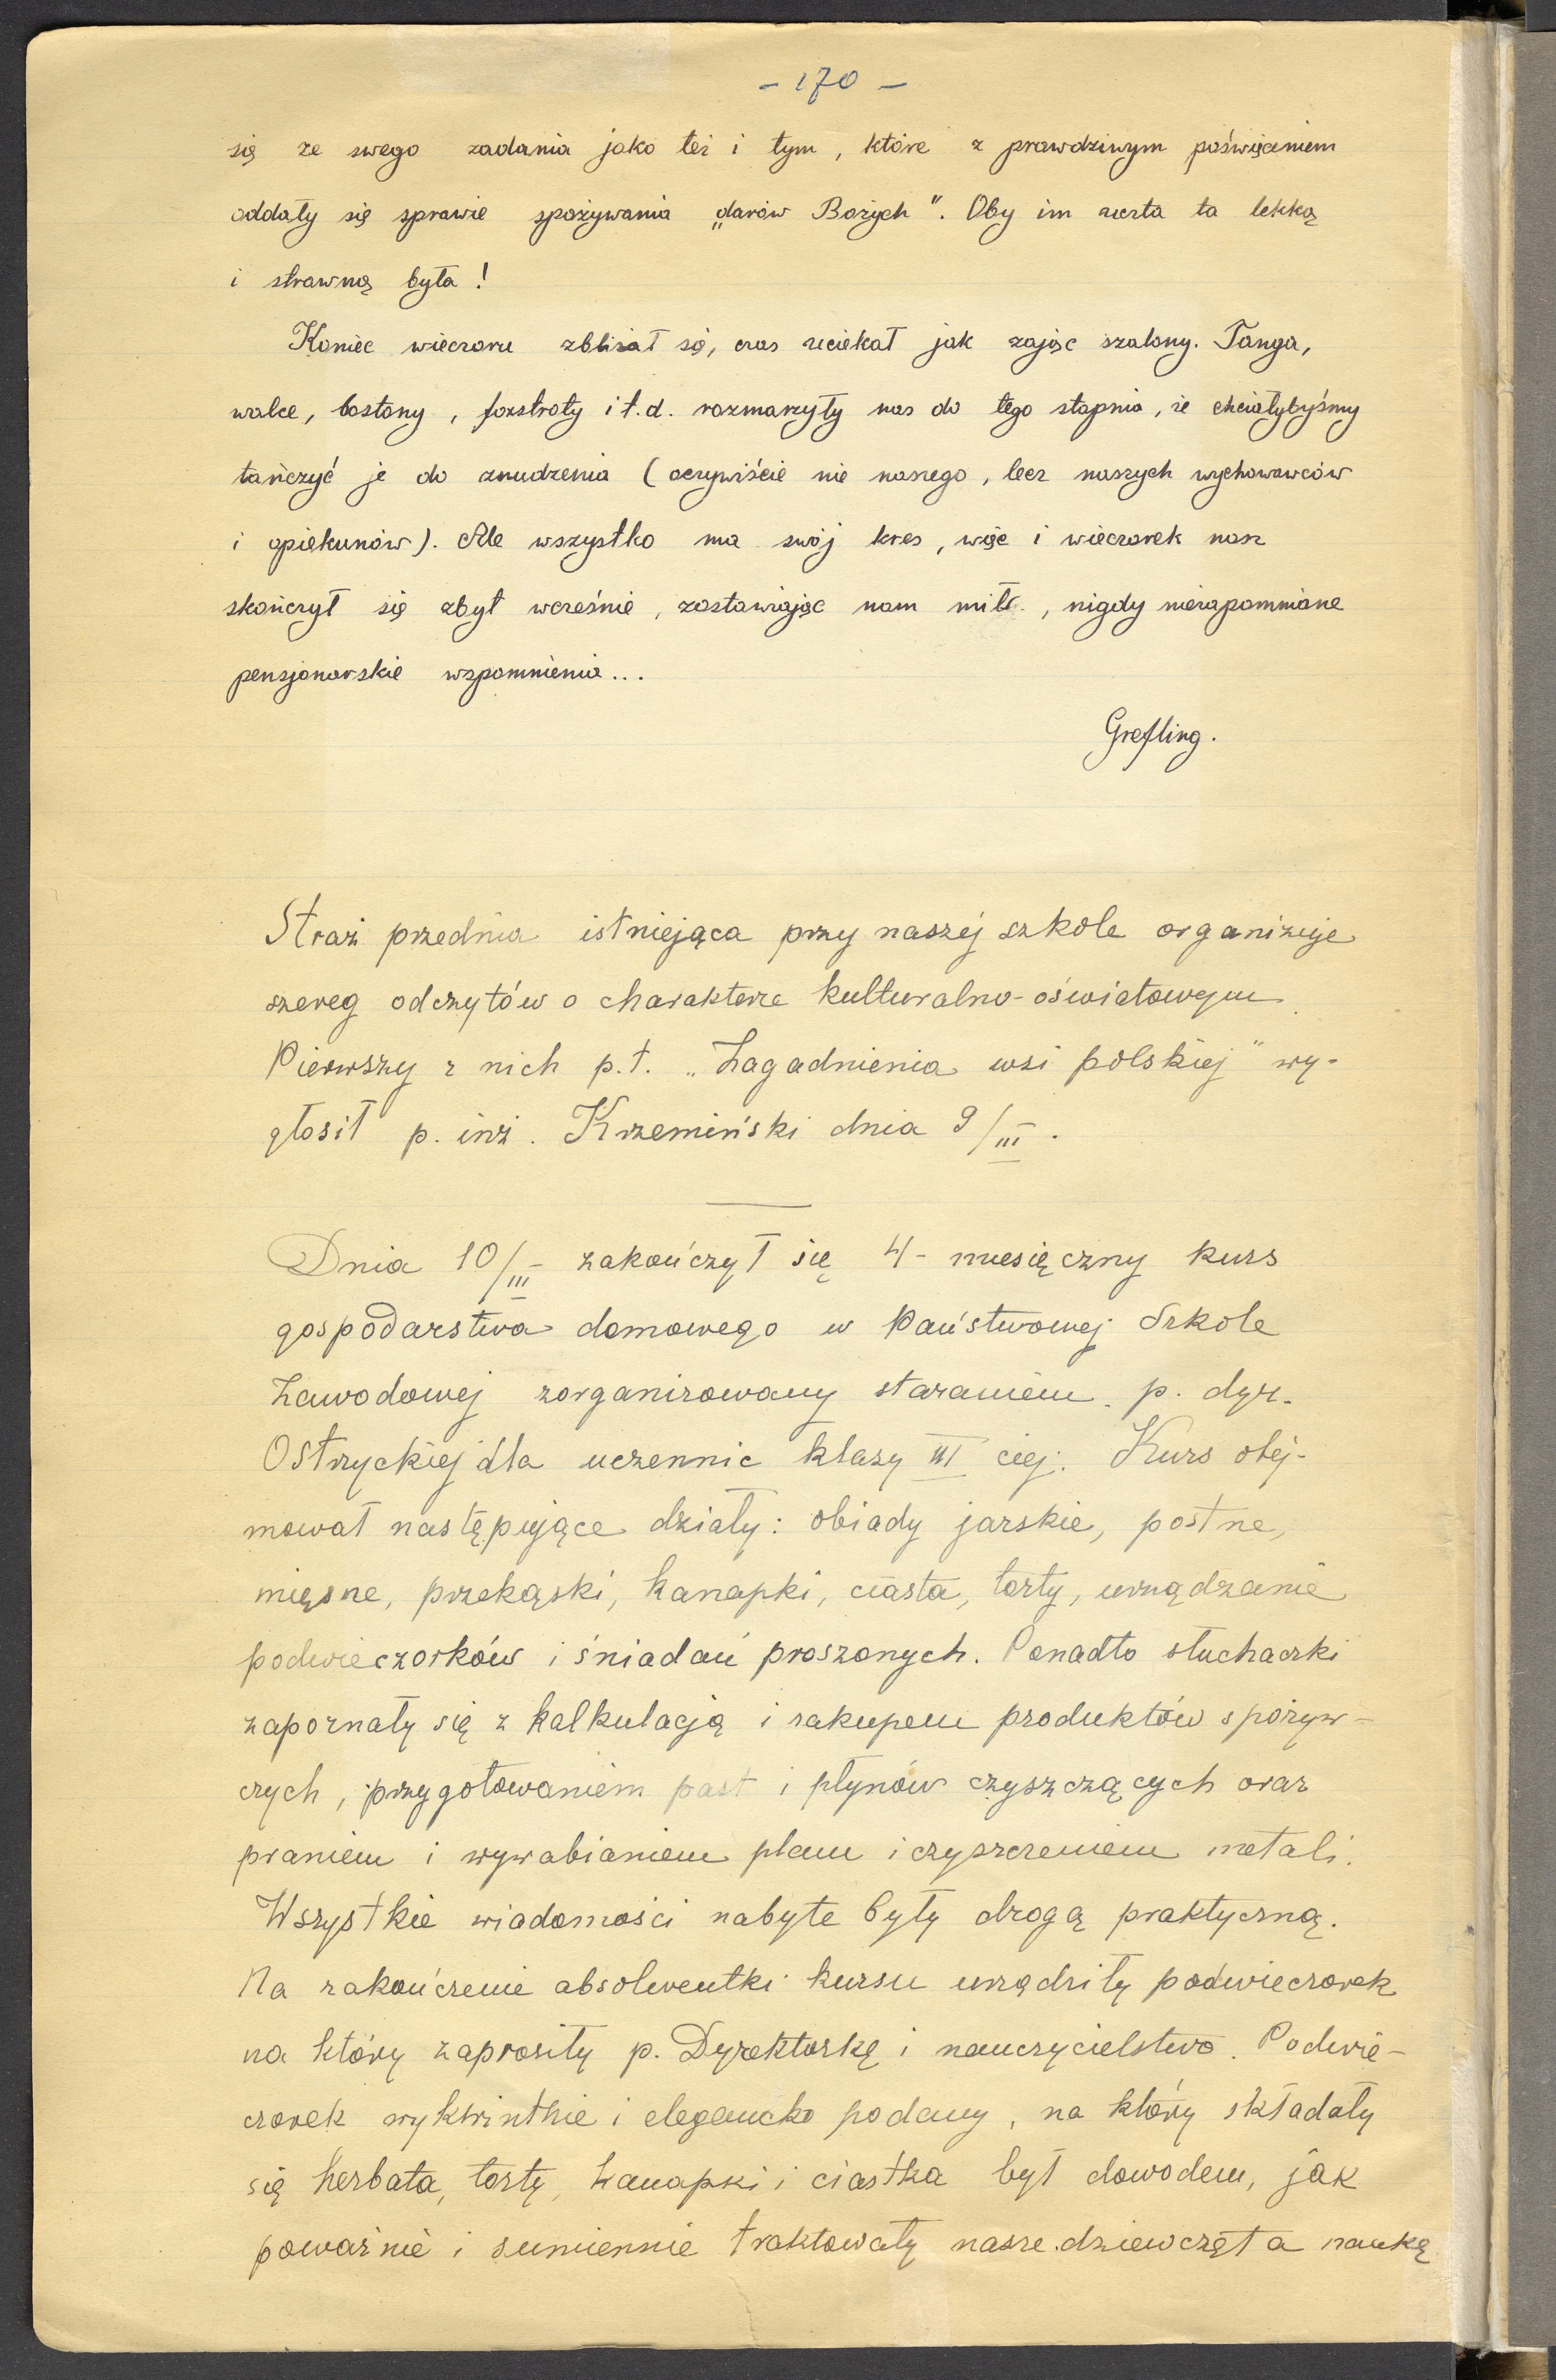 - 170 -
się ze swego zadania jako też i tym, które z prawdziwym poświęceniem
oddały się sprawie spożywania „darów Bożych". Oby im uczta ta lekką
i strawną była!
Koniec wieczoru zbliżał się, czas uciekał jak zając szalony. Tanga,
walce, bostony, foxstroty i t.d. rozmarzyły nas do tego stopnia, że chciałybyśmy
tańczyć je do znudzenia (oczywiście nie naszego, lecz naszych wychowawców
i opiekunów). Ale wszystko ma swój kres, więc i wieczorek nasz
skończył się zbyt wcześnie, zostawiając nam miłe, nigdy niezapomniane
pensjonarskie wspomnienia...
Grefling.
Straż przednia istniejąca przy naszej szkole organizuje
szereg odczytów o charakterze kulturalno-oświatowym.
Pierwszy z nich p.t. „Zagadnienia wsi polskiej" wy-
głosił p. inż. Krzemiński dnia 9/III.
Dnia 10/III - zakończył się 4-miesięczny kurs
gospodarstwa domowego w Państwowej Szkole
Zawodowej zorganizowany staraniem p. dyr.
Ostrzyckiej dla uczennic klasy III ciej. Kurs obej-
mował następujące działy: obiady jarskie, postne,
mięsne, przekąski, kanapki, ciasta, torty, urządzanie
podwieczorków i śniadań proszonych. Ponadto słuchaczki
zapoznały się z kalkulacją i zakupem produktów spożyw-
czych, przygotowaniem past i płynów czyszczących oraz
praniem i wywabianiem plam i czyszczeniem metali.
Wszystkie wiadomości nabyte były drogą praktyczną.
Na zakończenie absolwentki kursu urządziły podwieczorek
na który zaprosiły p. Dyrektorkę i nauczycielstwo. Podwie-
czorek wykwintnie i elegancko podany, na który składały
się herbata, torty, kanapki i ciastka był dowodem, jak
poważnie i sumiennie traktowały nasze dziewczęta naukę